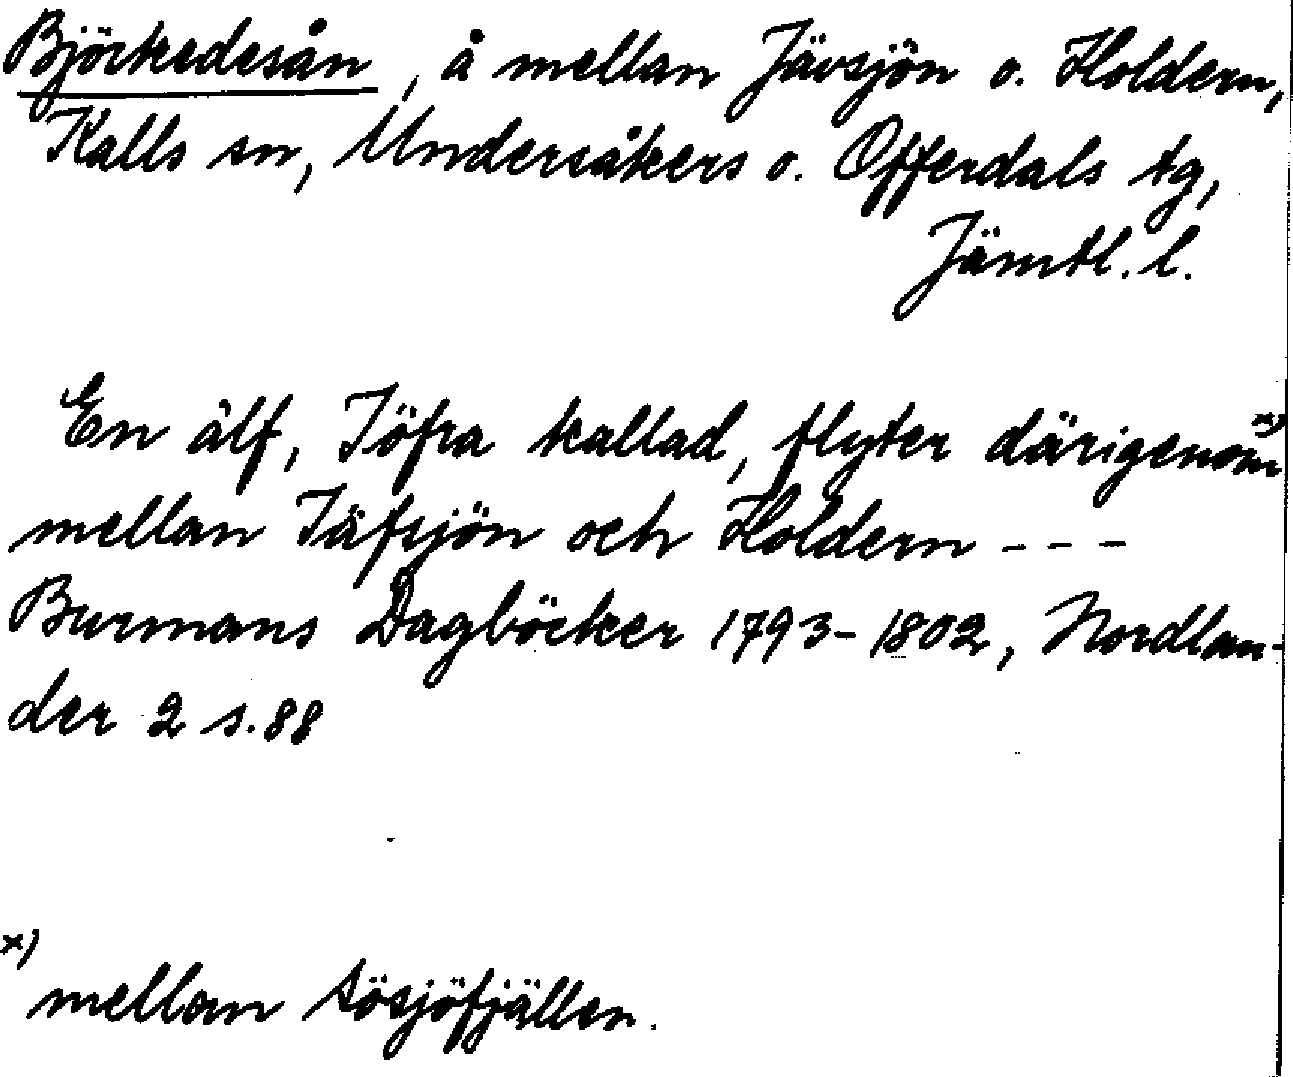 Björkedesån, å mellan Jävsjön o. Holdern,
Kalls sn, Undersåkers o. Offerdals tg,
Jämtl. l.
En älf, Jöfra kallad, flyter därigenom x)
mellan Jäfsjön och Holdern - - -
Burmans Dagböcker 1793-1802, Nordlan-
der 2 s. 88
x)
mellan Sösjöfjällen.